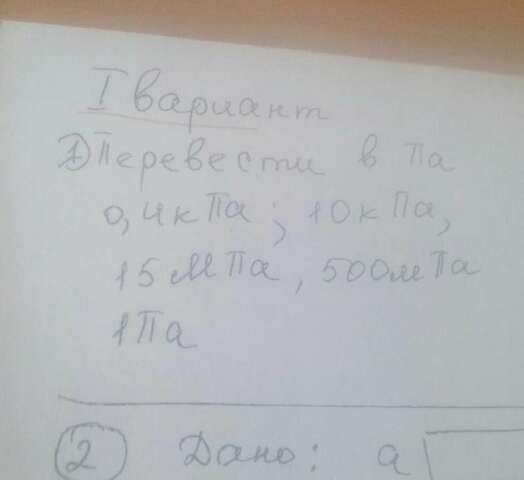 I вариант
1) Перевести в Па
0,4кПа; 10кПа,
15МПа, 500мПа
1Па
2 Дано: a